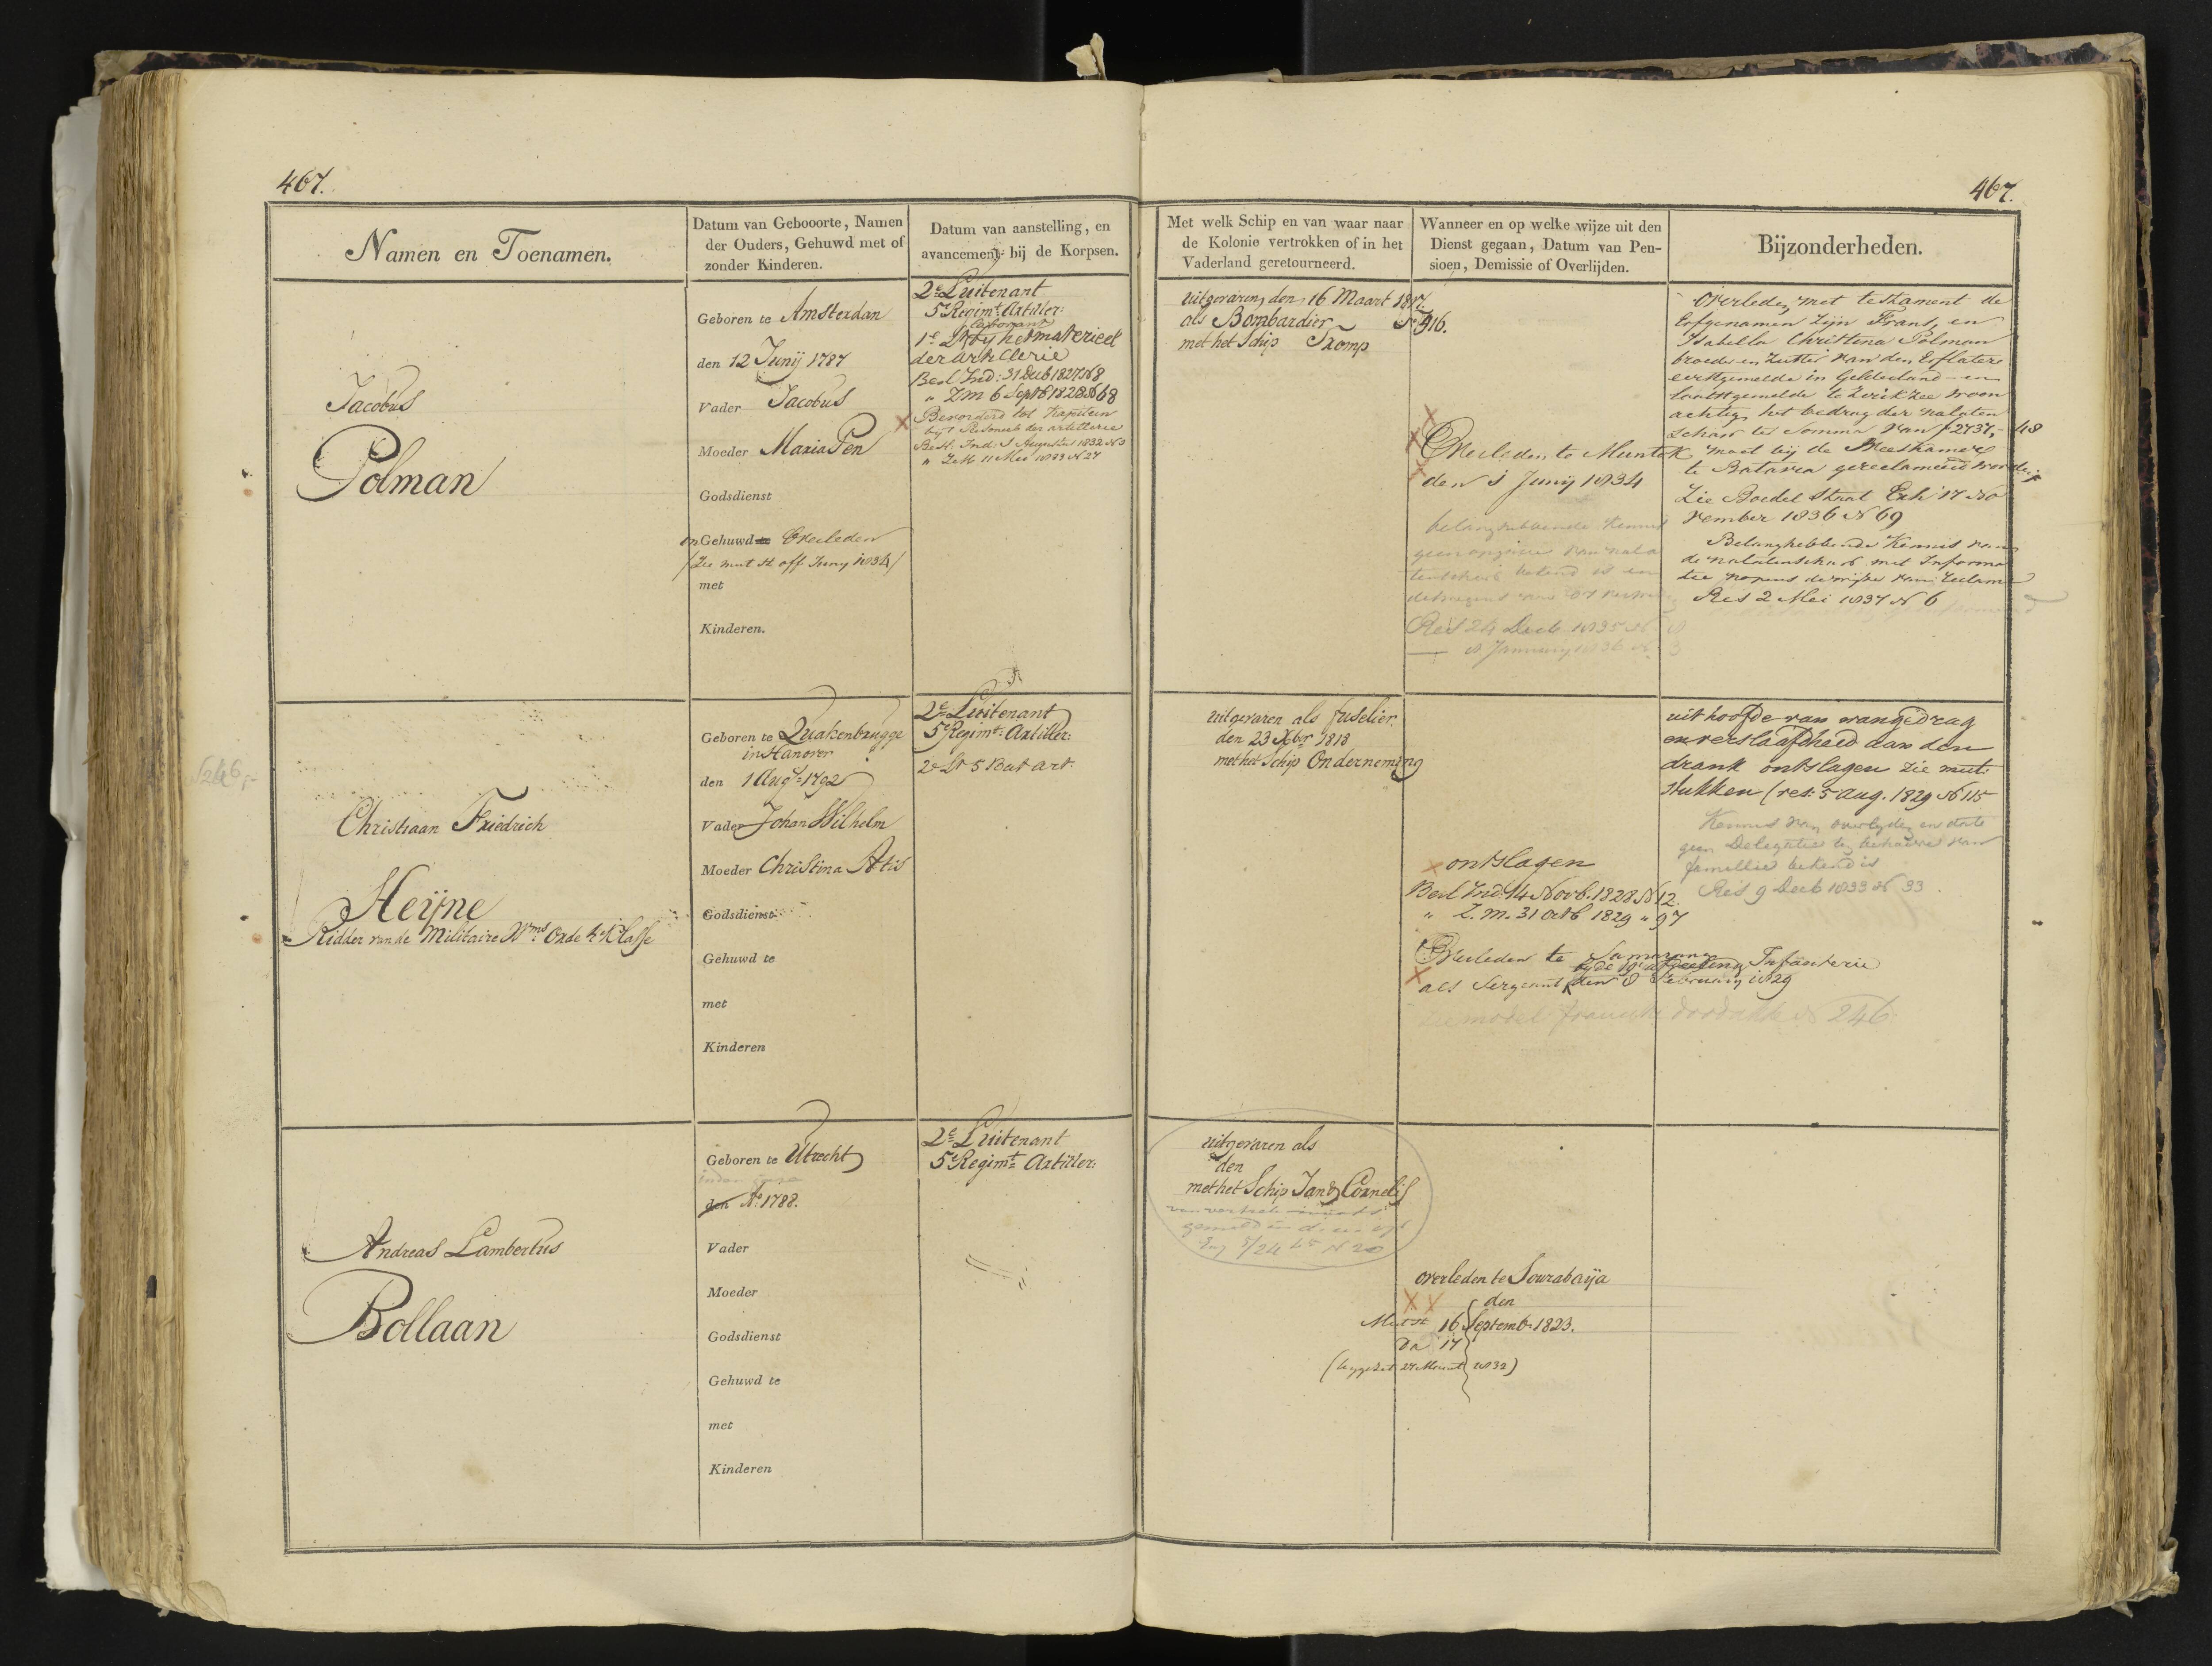 467.
467.
Namen en Toenamen.
Datum van Gebooorte, Namen
der Ouders, Gehuwd met of
zonder Kinderen.
Datum van aanstelling, en
avancement bij de Korpsen.
Met welk Schip en van waar naar
de Kolonie vertrokken of in het
Vaderland geretourneerd.
Wanneer en op welke wijze uit den
Dienst gegaan, Datum van Pen-
sioen, Demissie of Overlijden.
Bijzonderheden.
Jacobus
Polman
Geboren te Amsterdam
den 12 Junij 1787
Vader Jacobus
Moeder Maria Pen
Godsdienst
onGehuwd Overleden
/Zie mut st off Juny 1834/
met
Kinderen.
2e Luitenant
5e Regimt Artiller:
1e Lt bij het materieel
der artillerie
Besl Ind: 31 Decb 1827 N 8
" Z M 6 Septb 1828 N 68
Bevorderd tot Kapitein
bij 't Personeel der artillerie
Besl. Ind. 5 Augustus 1832 N 3
" Z M 11 Mei 1833 N 27
uitgevaren den 16 Maart 1817
als Bombardier 916.
met het Schip Tromp
Overleden te Muntok
den 5 Junij 1834
belanghebbende Kennis
Res 24 Decb 1835 N
January 1836 N 3
Overleden met testament de
Erfgenamen zijn Frans, en
Isabella Christina Polman
broeder en zuster van den Erflater
eerstgemelde in Gelderland en
laatstgemelde te Zierikzee woon
achtig, het bedrag der nalaten
schap ter somma van f 2737,48
moet bij de Weeskamer
te Batavia gereclameerd worden
Zie Boedel Staat Exh 17 No
vember 1836 N 69
Belanghebbende Kennis van
de nalatenschap met Informa
tie nopens de wijze van reclame
Res 2 Mei 1837 N 6
246
Christiaan Friedrich
Heijne
Ridder van de Militaire Wms Orde 4e Klasse
Geboren te Quakenbrugge
in Hanover
den 1 Augs 1792
Vader Johan Wilhelm
Moeder Christina Atis
Godsdienst
Gehuwd te
met
Kinderen
2e Luitenant
5e Regimt: Artiller:
2e Lt 5 Bat art.
uitgevaren als fuselier
den 23 Xbr 1818
met het Schip Onderneming
ontslagen
Besl Ind: 14 Novb. 1828 N 12
" Z. M. 31 octb 1829 " 97
Overleden te Samarang
bij de 19e afdeeling Infanterie
als Sergeant den 8 February 1829
246
uit hoofde van wangedrag
en verslaafdheid aan den
drank ontslagen zie mut:
stukken (res: 5 aug. 1829 N 115
Kennis van overlyden en dat
geen Delegatie ten behoeve van
famillie bekend is
Res 9 Decb 1833 N 33
Andreas Lambertus
Bollaan
Geboren te Utrecht
den Ao 1788.
Vader
Moeder
Godsdienst
Gehuwd te
met
Kinderen
2e Luitenant
5e Regimt Artiller:
uitgevaren als
den
met het Schip Jan & Cornelis
overleden te Sourabaija
den
Mutst 16 Septemb: 1823.
Da 17